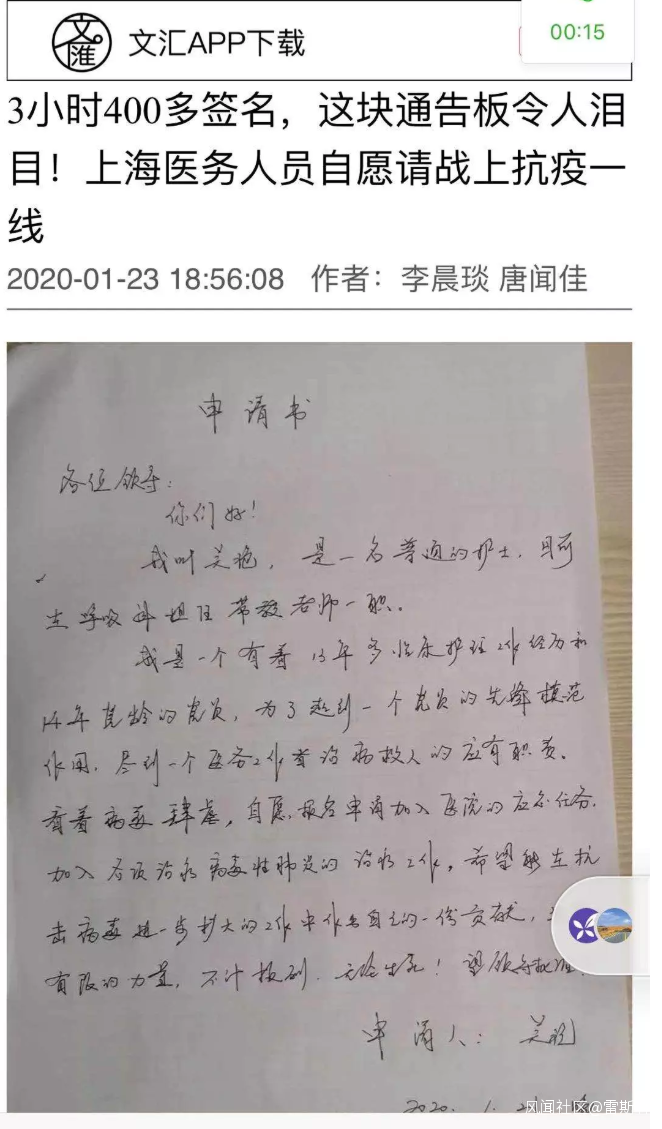 文匯
文汇APP下载
00:15
3小时400多签名，这块通告板令人泪
目！上海医务人员自愿请战上抗疫一
线
2020-01-23 18:56:08 作者：李晨琰 唐闻佳
申请书
各位领导：
你们好！
我叫吴艳，是一名普通的护士，目前
在呼吸科担任带教老师一职。
我是一个有着13年多临床护理工作经历和
14年党龄的党员，为了起到一个党员的先锋模范
作用，尽到一个医务工作者治病救人的应有职责。
看着病毒肆虐，自愿报名申请加入医院的应急任务，
加入各项治疗病毒性肺炎的治疗工作。希望能在抗
击病毒进一步扩大的工作中作出自己的一份贡献，
有限的力量，不计报酬，无论生死！望领导批准！
申请人：
2020. 1.
风闻社区@雷斯